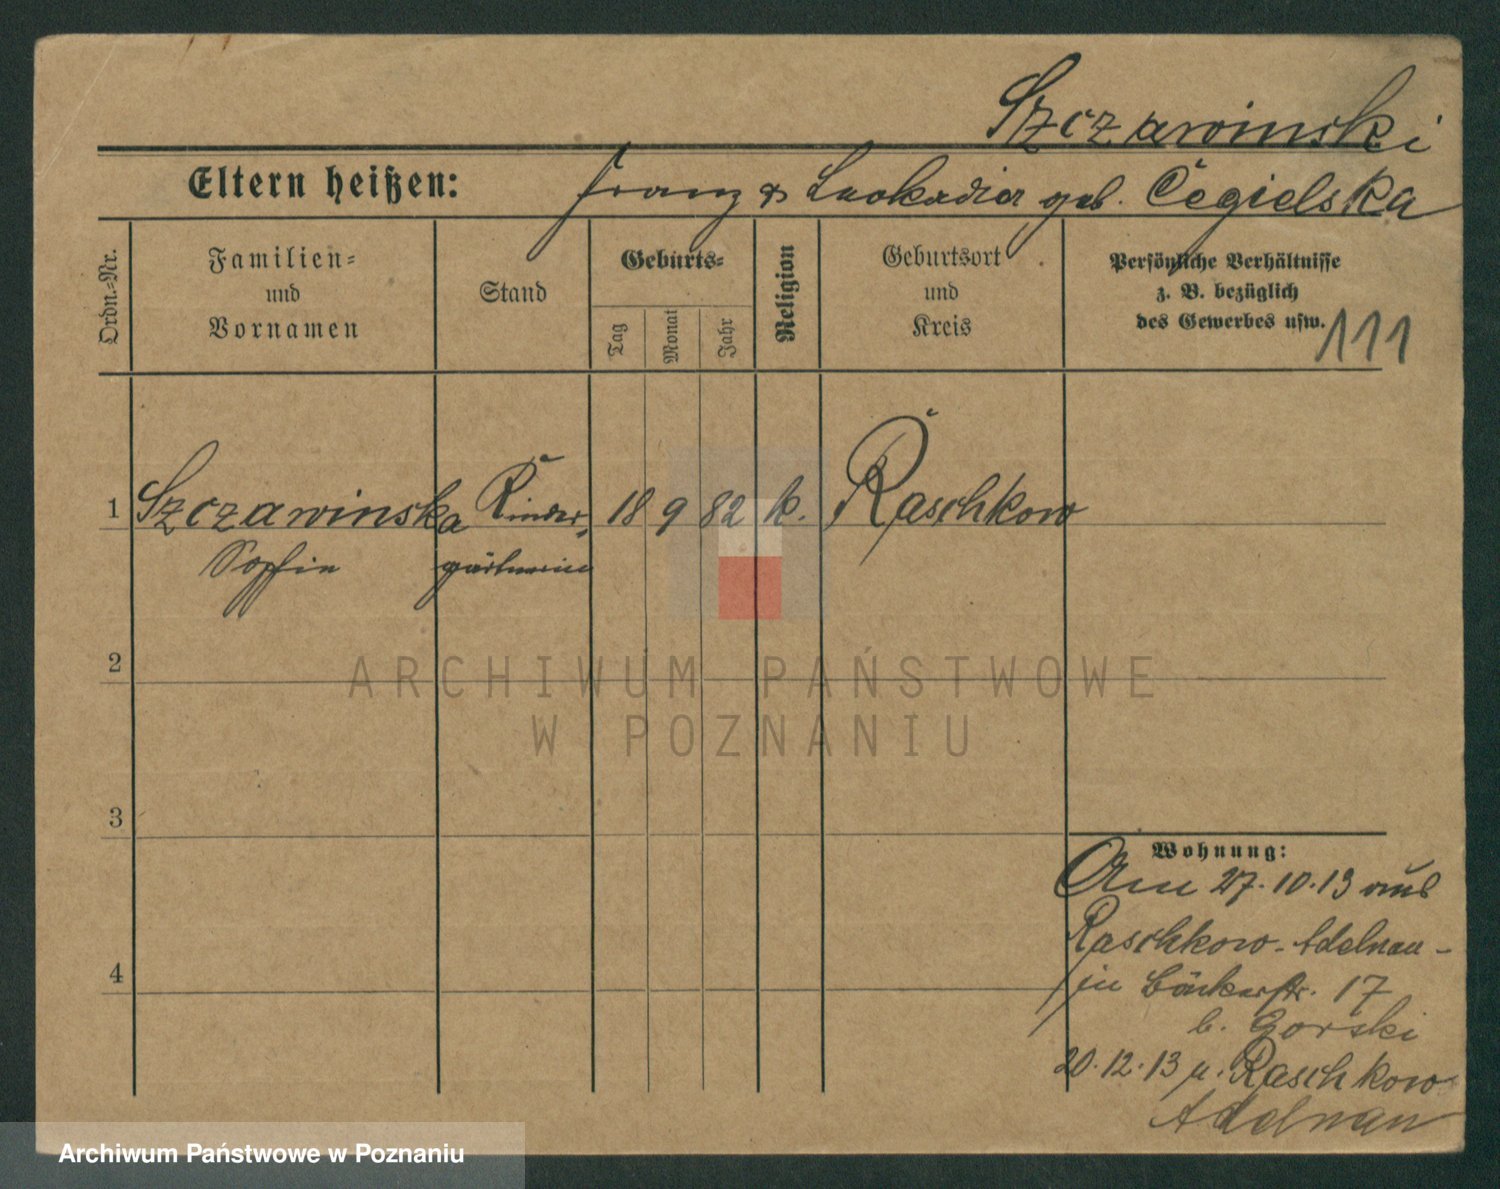 Szczawinski
Eltern heißen: Franz & Leokadia geb. Cegielska
Ordn.-Nr.
Familien-
und
Vornamen
Stand
Geburts-
Tag
Monat
Jahr
Religion
Geburtsort
und
Kreis
Persönliche Verhältnisse
z. B. bezüglich
des Gewerbes usw.
111
1 Szczawinska Kinder- 18 9 82 k. Raschkow
Sophie gärtnerin
2
ARCHIWUM PAŃSTWOWE
W POZNANIU
3
Wohnung:
27.10.13 aus
Raschkow-Adelnau-
in Bäckerstr. 17
b. Gorski
4
20.12.13 n. Raschkow
Adelnau
Archiwum Państwowe w Poznaniu